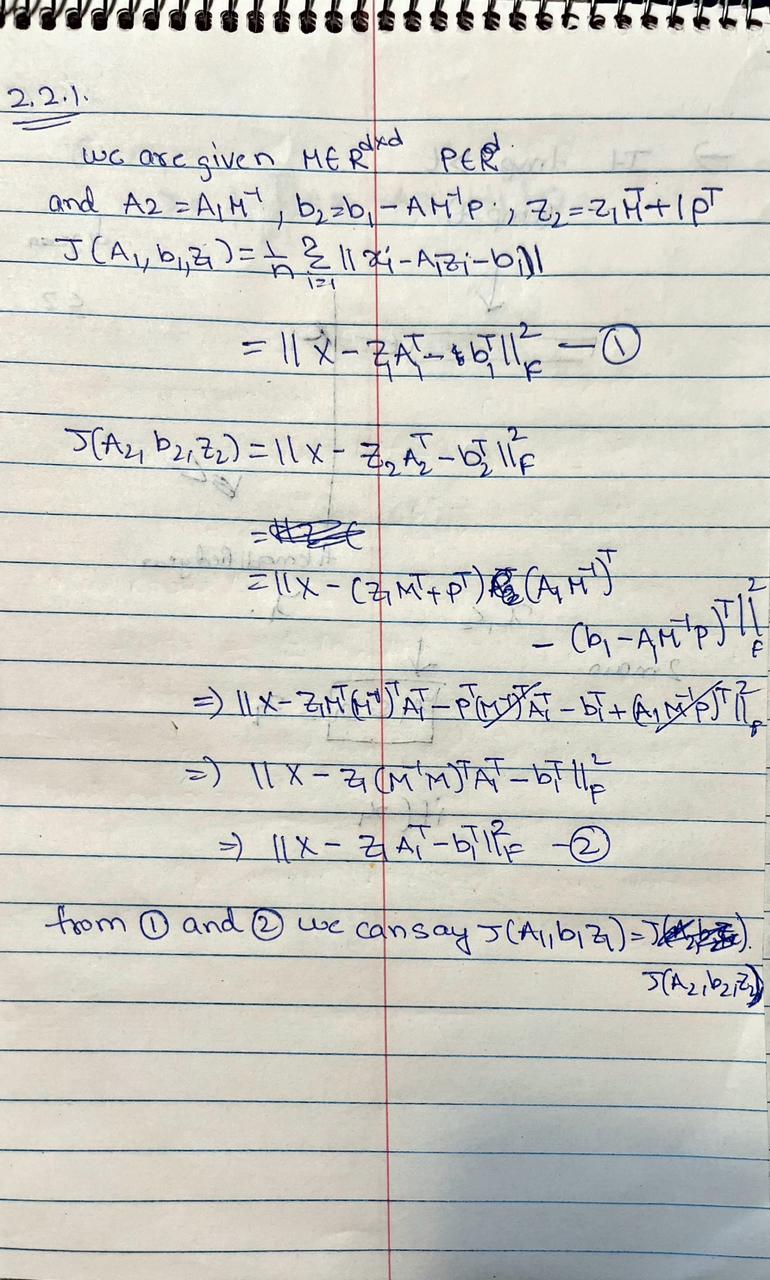 2.2.1.
we are given M∈R^{d×d} P∈R^d.
and A2 = A₁M⁻¹, b₂=b₁ - AM⁻¹p., Z₂ = Z₁M^T + 1p^T
J(A₁, b₁, Z₁) = 1/n Σ_{i=1} ||xᵢ - A₁zᵢ - b₁||
= ||X - Z₁A₁^T - b₁^T||²_F — ①
J(A₂, b₂, Z₂) = ||X - Z₂A₂^T - b₂^T||²_F
=
= ||X - (Z₁M^T + p^T) (A₁M⁻¹)^T
- (b₁ - A₁M⁻¹p)^T||²_F
=> ||X - Z₁M^T(M⁻¹)^T A₁^T - p^T(M⁻¹)^T A₁^T - b₁^T + (A₁M⁻¹p)^T||²_F
=> ||X - Z₁(M⁻¹M)^T A₁^T - b₁^T||²_F
=> ||X - Z₁A₁^T - b₁^T||²_F - ②
from ① and ② we can say J(A₁, b₁ Z₁) = J( ).
J(A₂, b₂, Z₂)